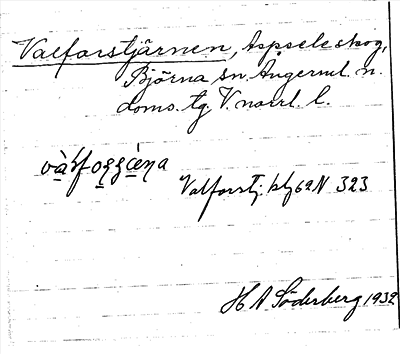 Valforstjärnen, Aspsele skog,
Björna sn. Ångerml. n.
doms. tg. V. norrl. l.
Valforstj. blg 62 N 323
H A Söderberg 1932